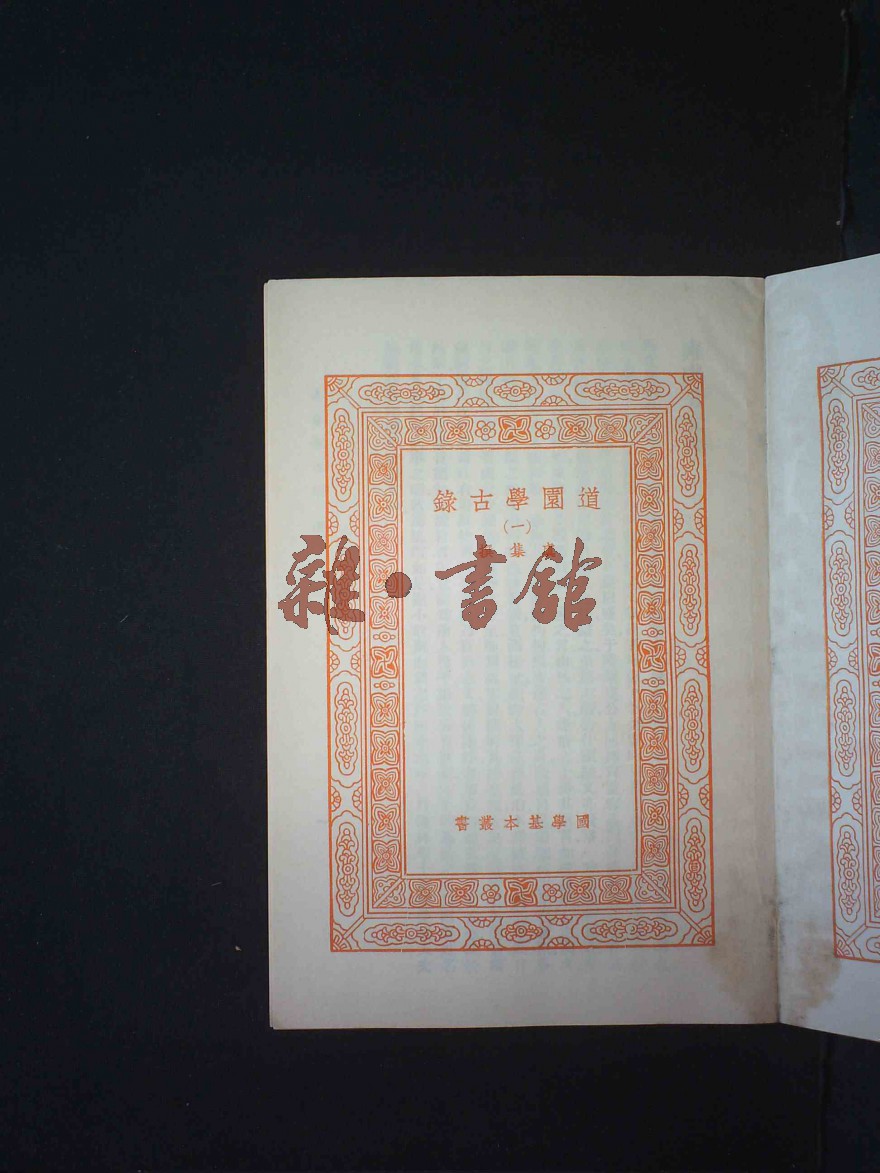 道園學古錄
(一)
集
國學基本叢書
雜·書館